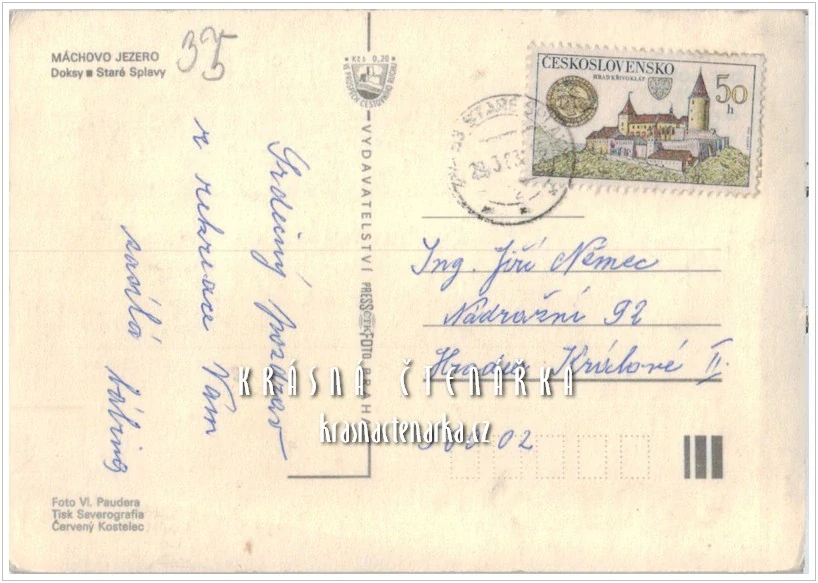 MÁCHOVO JEZERO
Doksy ■ Staré Splavy
35
Kčs 0,20
VE PROSPĚCH CESTOVNÍHO RUCHU
ČESKOSLOVENSKO
HRAD KŘIVOKLÁT
50
h
STARÉ SPLAVY
VYDAVATELSTVÍ PRESSFOTO PRAHA
Srdečný pozdrav
z rekreace Vám
zasílá
Ing. Jiří Němec
Nádražní 92
Hradec Králové II.
KRÁSNÁ ČTENÁŘKA
krasnactenarka.cz
02
Foto Vl. Paudera
Tisk Severografia
Červený Kostelec